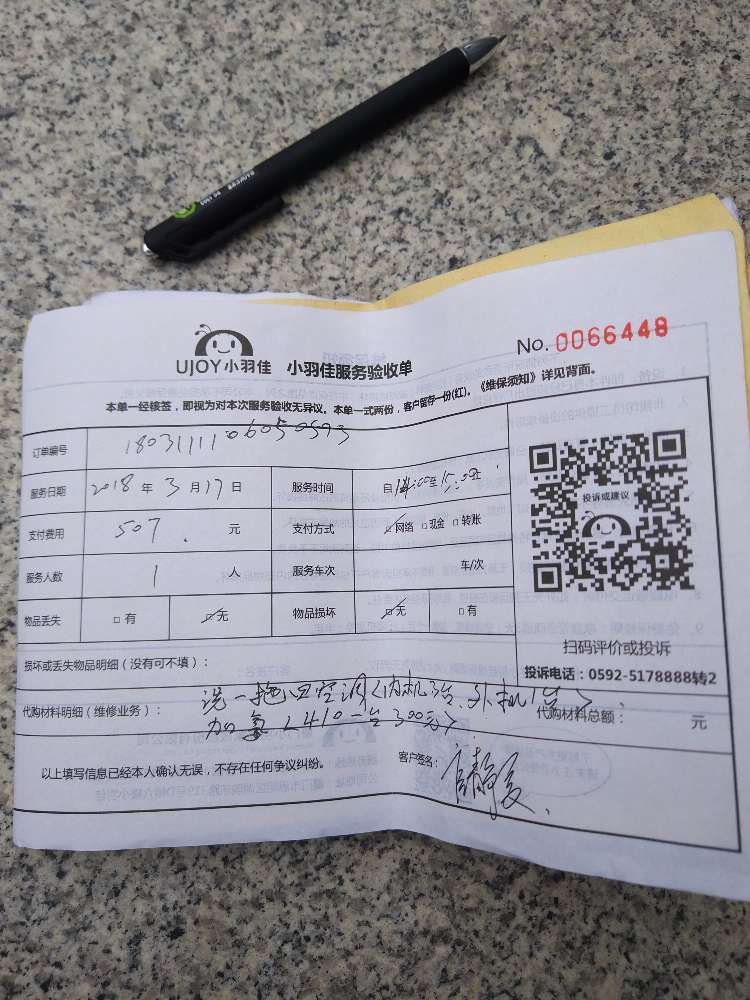 UJOY小羽佳 小羽佳服务验收单
No. 0066448
本单一经核签，即视为对本次服务验收无异议。本单一式两份，客户留存一份(红)。《维保须知》详见背面。
订单编号
服务日期 2018 年 3 月 17 日 服务时间 自 至
支付费用 507. 元 支付方式 网络 □现金 □转账
服务人数 1 人 服务车次 车/次
物品丢失 □有 无 物品损坏 无 □有
投诉或建议
扫码评价或投诉
投诉电话：0592-5178888转2
损坏或丢失物品明细（没有可不填）：
代购材料明细（维修业务）： 洗一拖四空调 内机 外机1台
加氟（410一台300元）
代购材料总额： 元
以上填写信息已经本人确认无误，不存在任何争议纠纷。
客户签名：